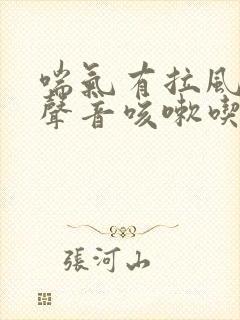 喘氣有拉風
聲音咳嗽喫
張河山